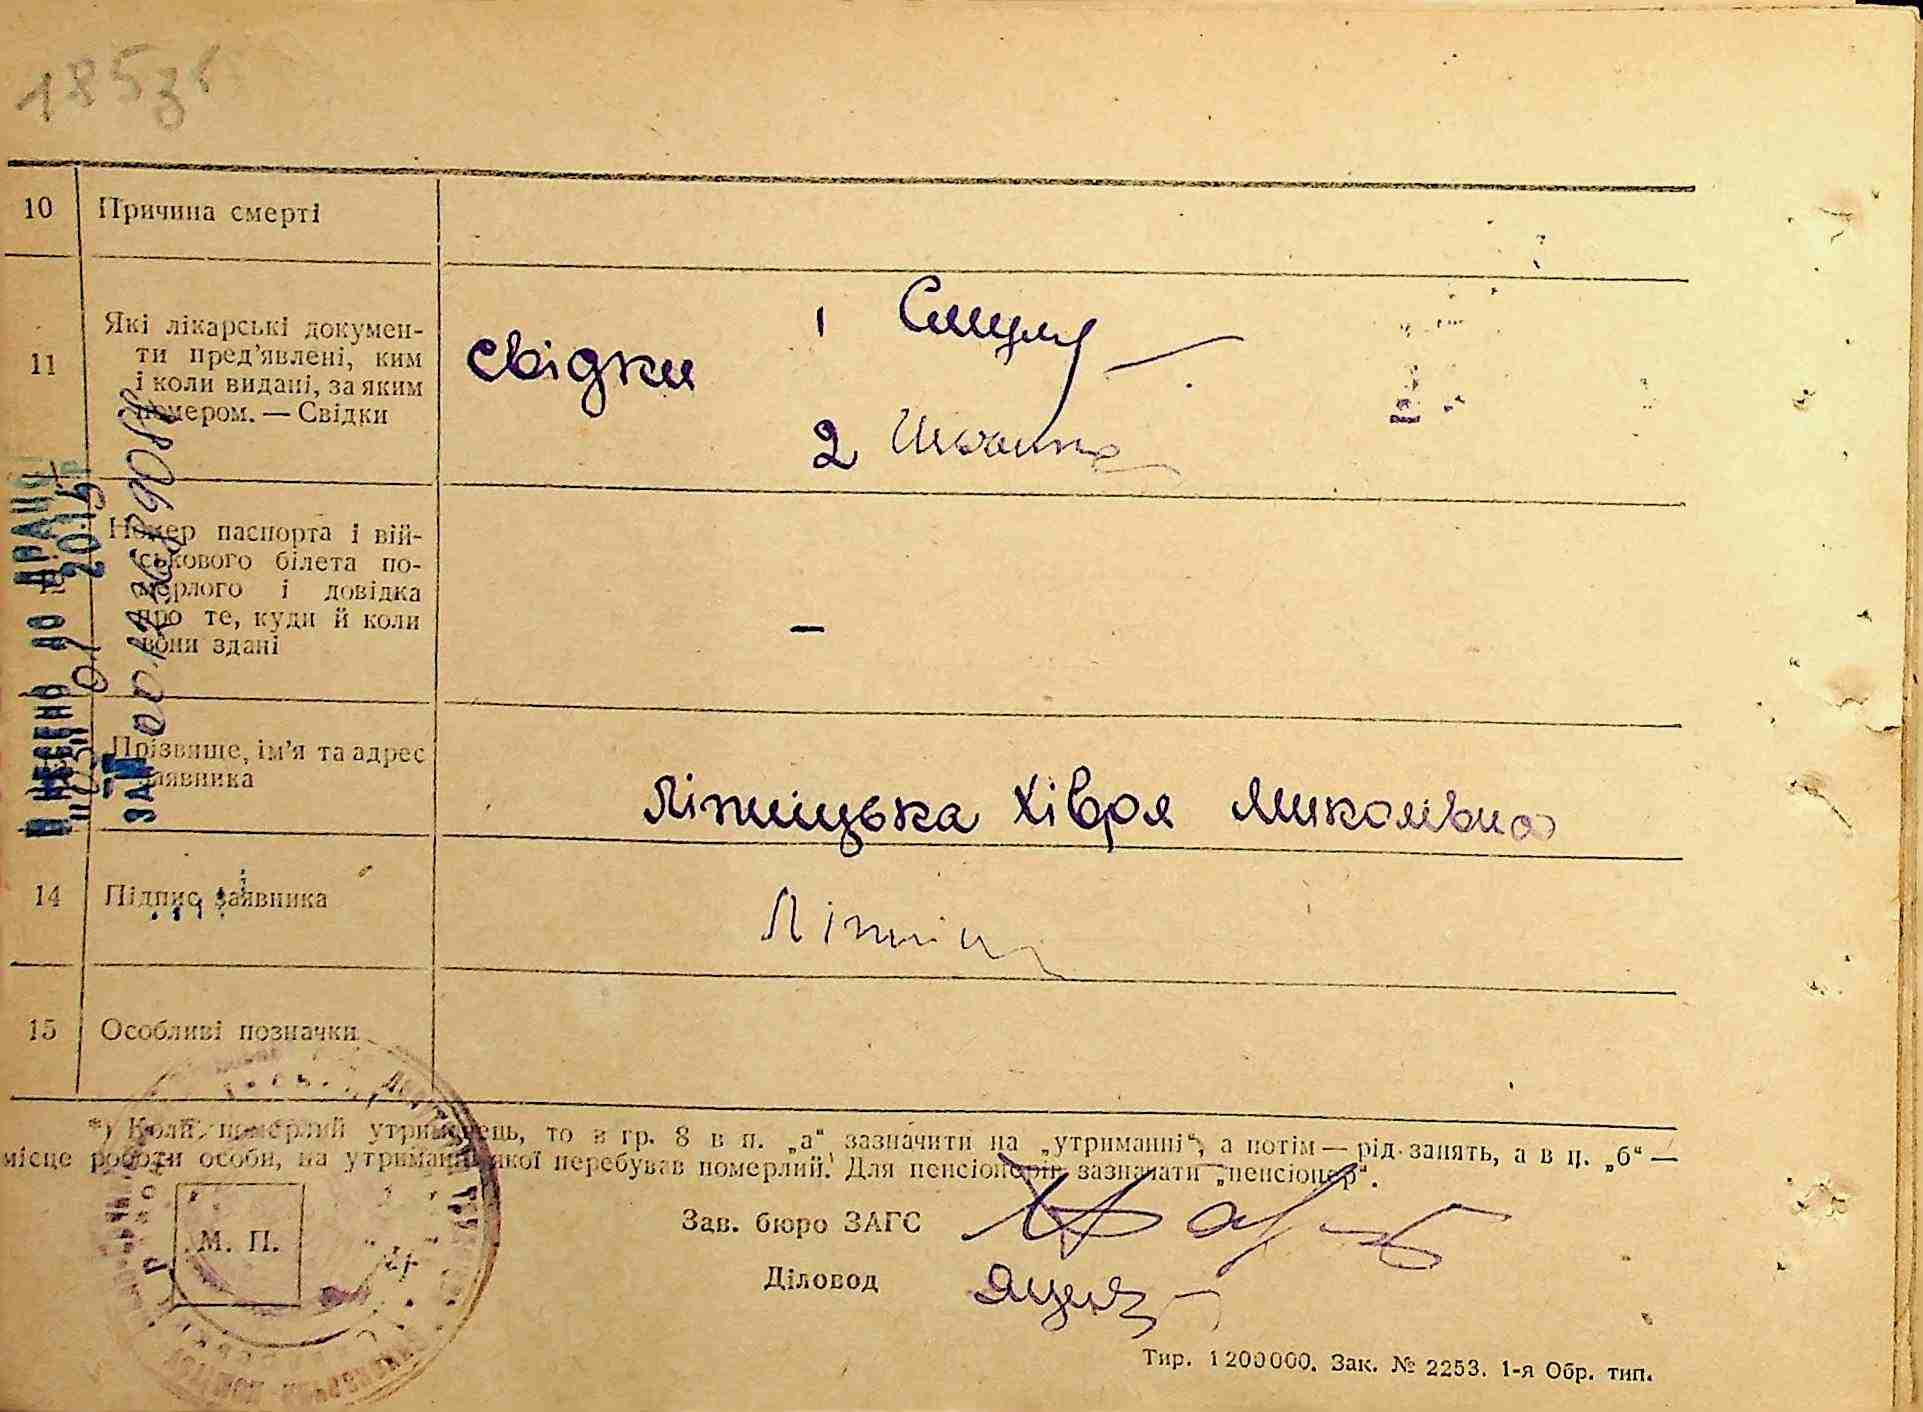 185зв
10 Причина смерті
11 Які лікарські докумен-
ти пред'явлені, ким
і коли видані, за яким
номером. — Свідки
свідки 1
2
Номер паспорта і вій-
ськового білета по-
мерлого і довідка
про те, куди й коли
вони здані
—
Прізвище, ім'я та адрес
заявника
Ліпницька Хівря Миколівна
14 Підпис заявника
Ліпниц
15 Особливі позначки
*) Коли померлий утриманець, то в гр. 8 в п. „а“ зазначити на „утриманні“, а потім — рід занять, а в п. „б“ —
місце роботи особи, на утриманні якої перебував померлий. Для пенсіонерів зазначати „пенсіонер“.
М. П.
Зав. бюро ЗАГС
Діловод
Тир. 1200000. Зак. № 2253. 1-я Обр. тип.
ВНЕСЕНО ДО ДРАЦС
01 2015р
ЗА №